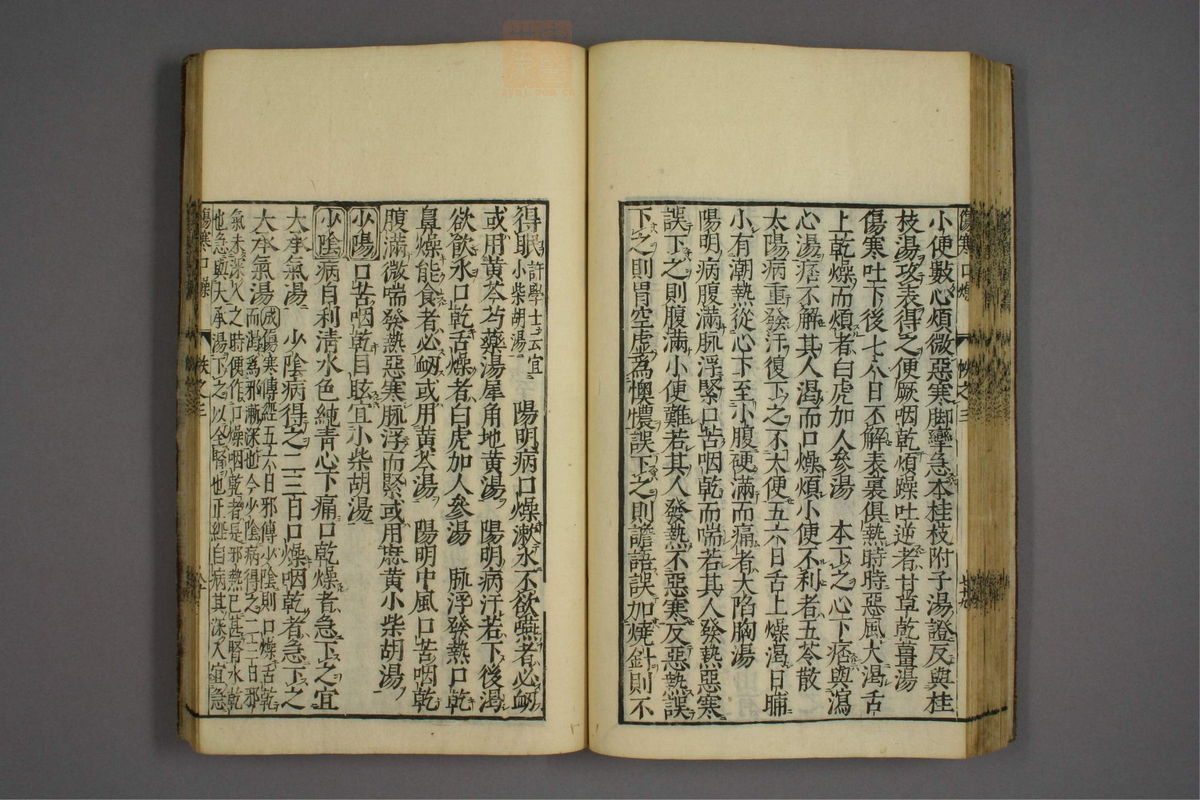 小便數心煩微惡寒脚攣急本桂枝附子湯證反與桂
枝湯攻表得之便厥咽乾煩躁吐逆者甘草乾薑湯
傷寒吐下後七八日不解表裏俱熱時時惡風大渴舌
上乾燥而煩者白虎加人參湯　本下之心下痞與瀉
心湯痞不解其人渴而口燥煩小便不利者五苓散
太陽病重發汗復下之不大便五六日舌上燥渴日晡
小有潮熱從心下至小腹硬滿而痛者大陷胸湯
陽明病腹滿脉浮緊口苦咽乾而喘若其人發熱惡寒
誤下之則腹滿小便難若其人發熱不惡寒反惡熱誤
下之則胃空虛為懊憹誤下之則譫語誤加燒針則不
得眠許學士云宜小柴胡湯　陽明病口燥漱水不欲嚥者必衂
或用黄芩芍藥湯犀角地黄湯　陽明病汗若下後渴
欲飲水口乾舌燥者白虎加人參湯　脉浮發熱口乾
鼻燥能食者必衂或用黄芩湯　陽明中風口苦咽乾
腹滿微喘發熱惡寒脉浮而緊或用麻黄小柴胡湯
少陽口苦咽乾目眩宜小柴胡湯
少陰病自利清水色純青心下痛口乾燥者急下之宜
大承氣湯　少陰病得之二三日口燥咽乾者急下之
大承氣湯成傷寒傳經五六日邪傳少陰則口燥舌乾
而渴為邪漸深也今少陰病得之二三日邪
氣未深入之時便作口燥咽乾者是邪熱已甚腎水乾
也急與大承湯下之以全腎也正經自病其深入宜急
傷寒口燥　帙之三